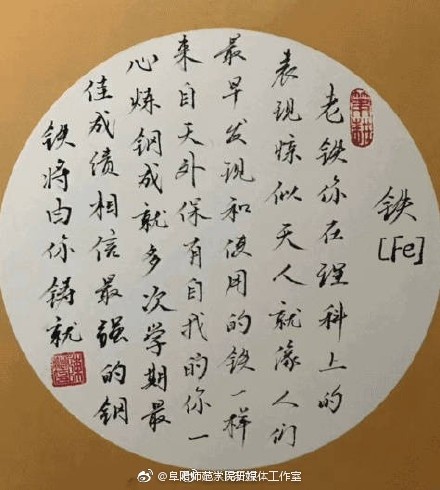 铁
[Fe]
老铁你在理科上的
表现惊似天人就像人们
最早发现和使用的铁一样
来自天外保有自我的你一
心炼钢成就多次学期最
佳成绩相信最强的钢
铁将由你铸就
笔耕
@阜阳师范学院融媒体工作室